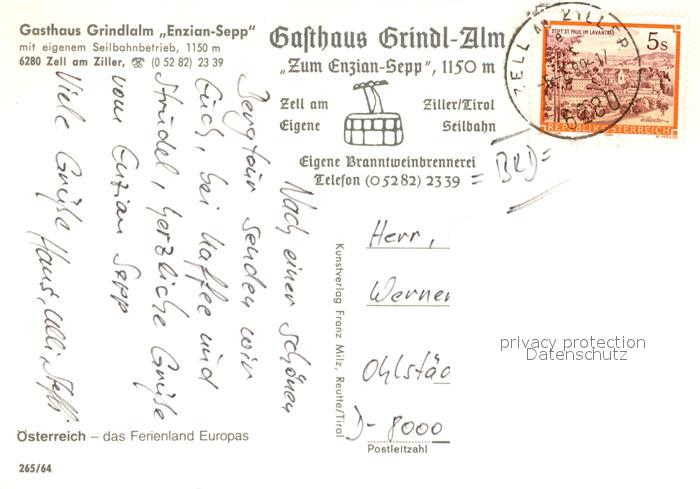 Gasthaus Grindlalm „Enzian-Sepp"
mit eigenem Seilbahnbetrieb, 1150 m
6280 Zell am Ziller, ☎ (0 52 82) 23 39
Gasthaus Grindl-Alm
„Zum Enzian-Sepp", 1150 m
Zell am Ziller/Tirol
Eigene Seilbahn
Eigene Branntweinbrennerei
Telefon (05282) 2339
= BRD =
ZELL AM ZILLER
6280
STIFT ST. PAUL IM LAVANTTAL
5s
REPUBLIK ÖSTERREICH
Nach einer schönen
Bergtour senden wir
Euch, bei Kaffee und
Strudel, herzliche Grüße
vom Enzian Sepp
Viele Grüße Hans, Ulli, Steffi
Kunstverlag Franz Milz, Reutte/Tirol
Herr,
Werner
Ohlstäd
D- 8000
Postleitzahl
privacy protection
Datenschutz
Österreich – das Ferienland Europas
265/64